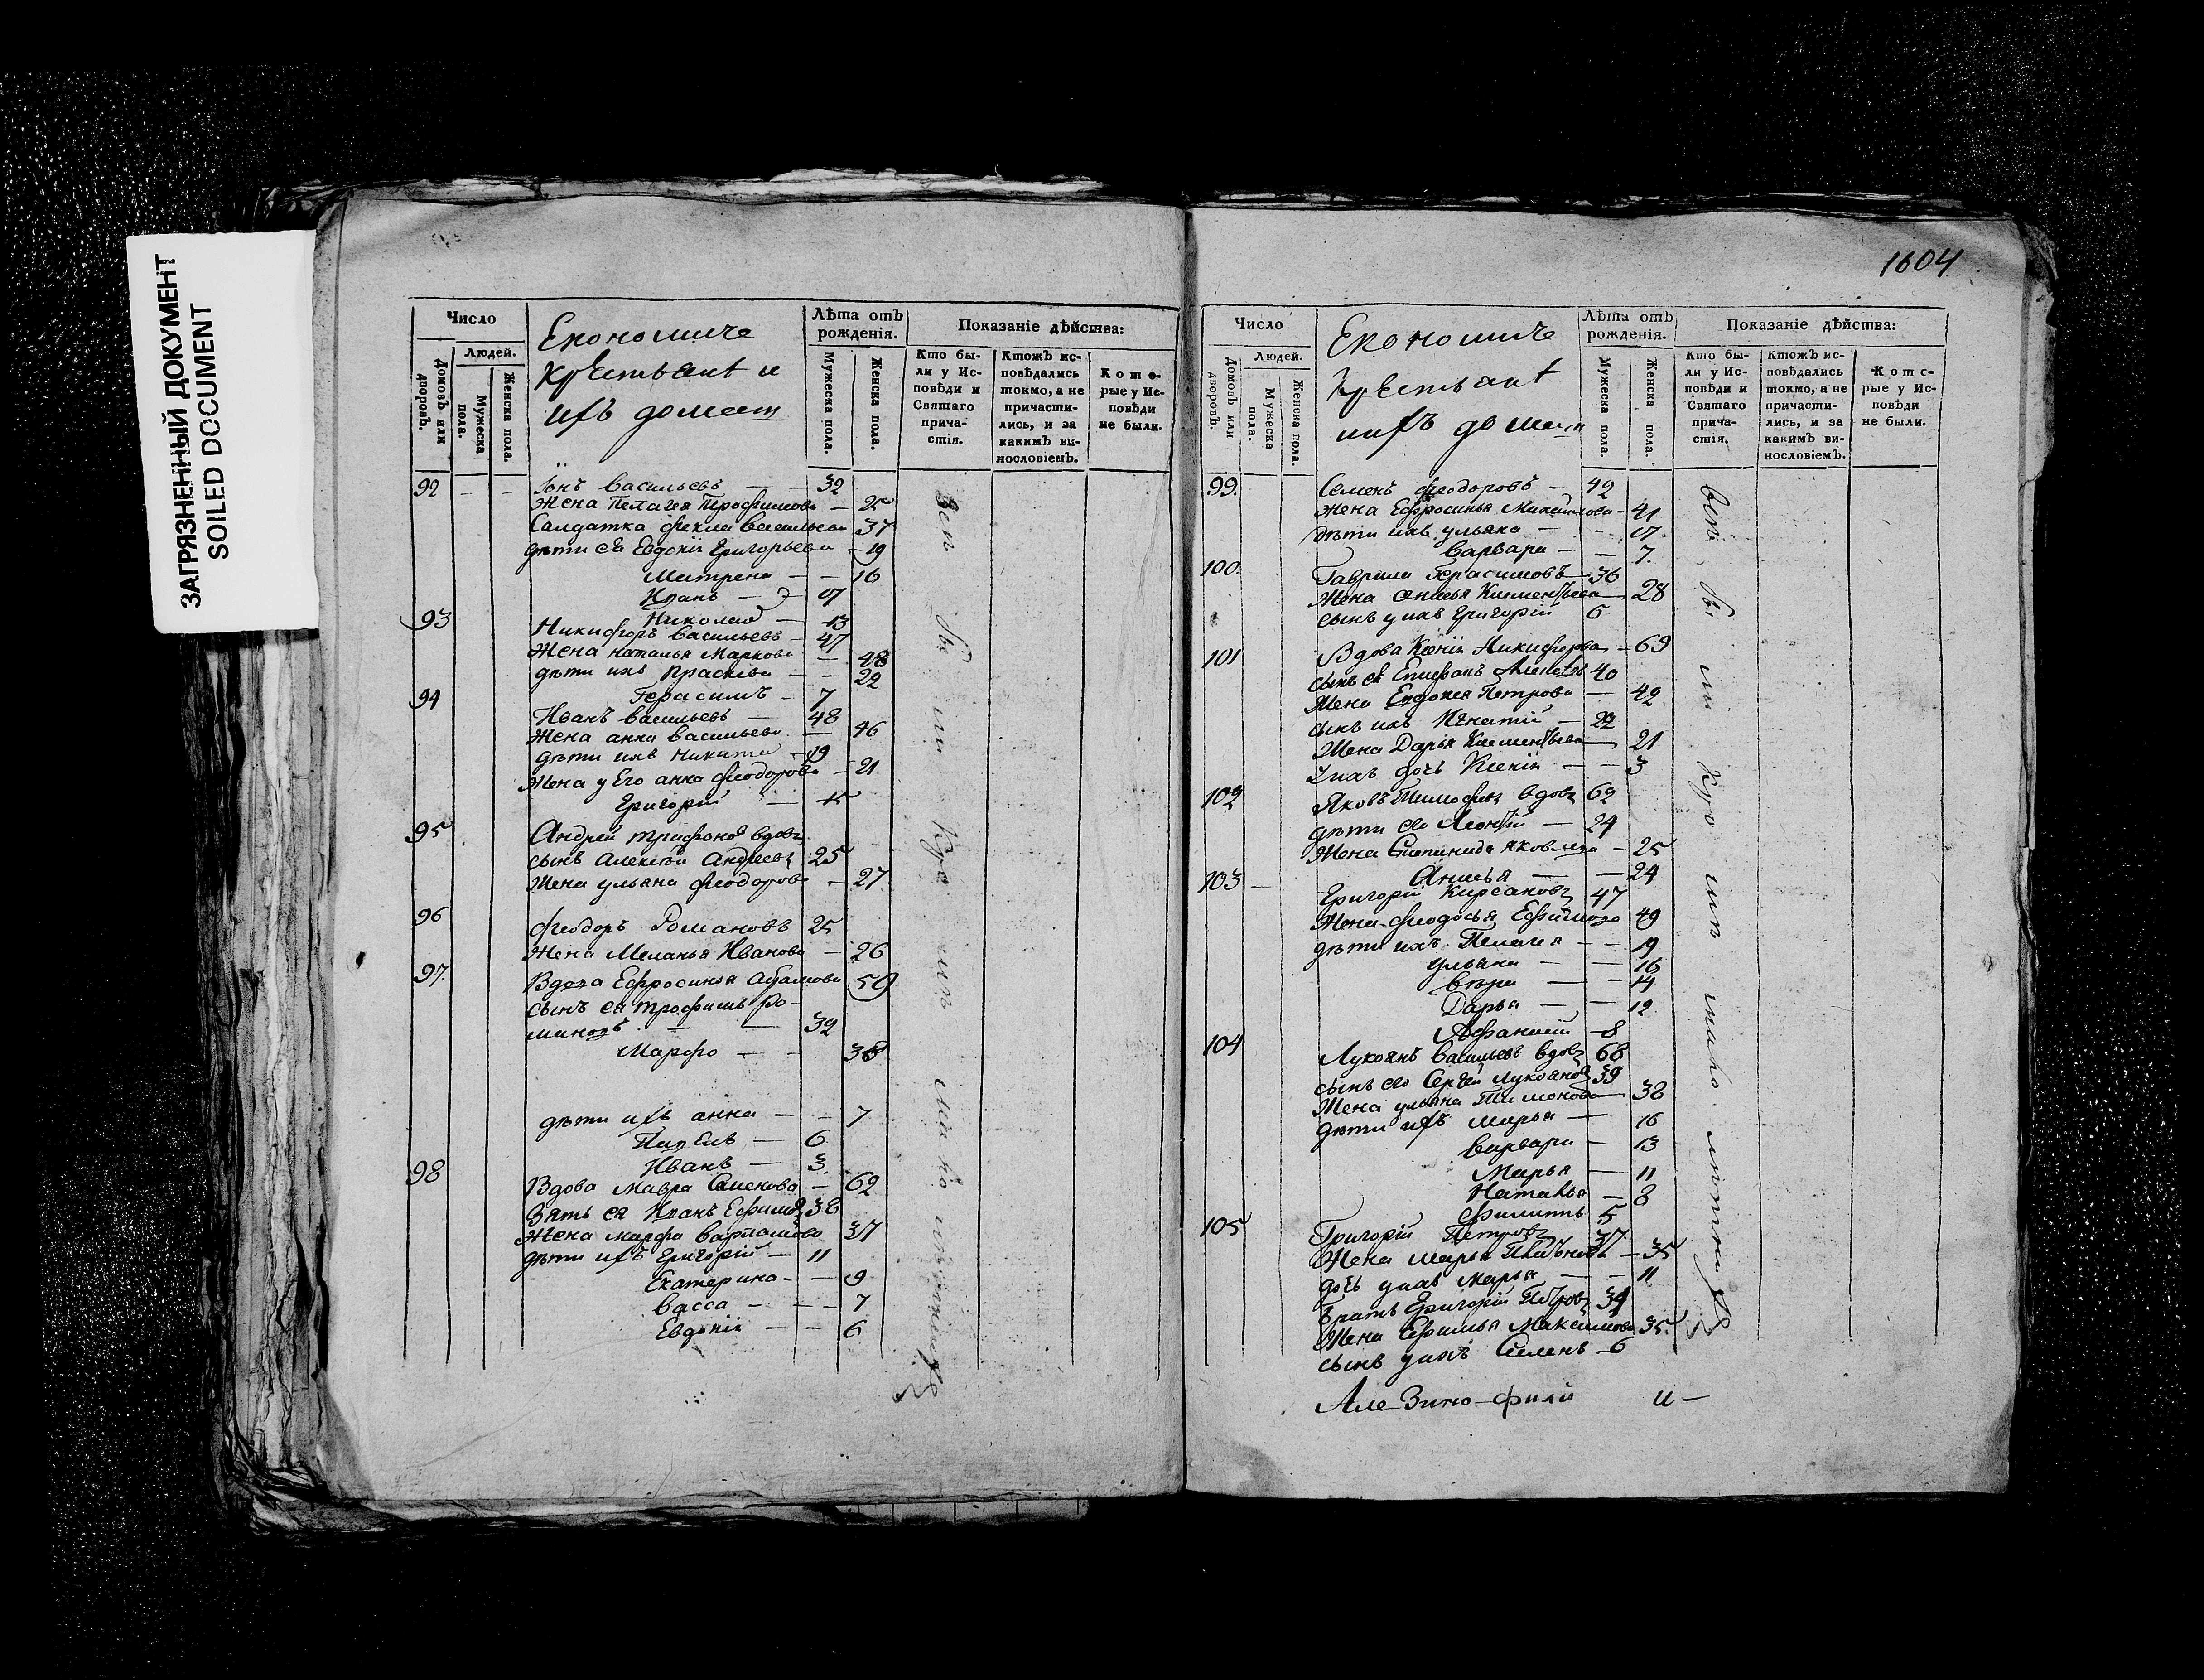 ЗАГРЯЗНЕННЫЙ ДОКУМЕНТ
SOILED DOCUMENT
Число
Людей.
Домовъ или дворовъ.
Мужеска пола.
Женска пола.
Економиче
крестьянѣ и
ихъ домаш
Лѣта отъ рожденія.
Мужеска пола.
Женска пола.
Показаніе дѣйства:
Кто бы-
ли у Ис-
повѣди и
Святаго
прича-
стія.
Ктожъ ис-
повѣдались
токмо, а не
причасти-
лись, и за
какимъ ви-
нословіемъ.
Кото-
рые у Ис-
повѣди
не были.
92 Іонъ Васильевъ — 32
Жена Пелагея Трофимова — 25
Салдатка Фекла Васильева 37
дѣти ея Евдокія Григорьева — 19
Матрена — — 16
Иванъ —
Николай — 13
93 Никифоръ Васильевъ — 47
Жена Наталья Маркова — 48
дѣти ихъ Прасковья — — 22
Герасимъ — 7
94 Иванъ Васильевъ — 48
Жена анна Васильева — 46
дѣти ихъ Никита — 19
Жена у Его анна Феодорова — 21
Григорій — 15
95 Андрей Трифоновъ вдовъ
сынъ Алексѣй Андреевъ 25
Жена ульяна Феодорова — 27
96 Феодоръ Романовъ 25
Жена Меланья Иванова — 26
97. Вдова Ефросинья Абрамова 59
сынъ ея Трофимъ Ро-
мановъ — — 32
Марфа — — 38
дѣти ихъ анна — — 7
Павелъ — 6
Иванъ — 3
98 Вдова Мавра Семенова — 62
Зять ея Иванъ Ефимовъ 38
Жена Марфа Варламова 37
дѣти ихъ Григорій — 11
Екатерина — — 9
Васса — — — 7
Евдокія — — 6
1604
Число
Людей.
Домовъ или дворовъ.
Мужеска пола.
Женска пола.
Економиче
Крестьянѣ
ихъ домаш
Лѣта отъ рожденія.
Мужеска пола.
Женска пола.
Показаніе дѣйства:
Кто бы-
ли у Ис-
повѣди и
Святаго
прича-
стія.
Ктожъ ис-
повѣдались
токмо, а не
причасти-
лись, и за
какимъ ви-
нословіемъ.
Кото-
рые у Ис-
повѣди
не были.
99. Семенъ Феодоровъ — 42
Жена Ефросинья Михайлова — 41
дѣти ихъ ульяна —
Варвара — — 7.
100. Гаврила Герасимовъ — 36
Жена Клементьева — 28
сынъ у ихъ Григорій 6
101 Вдова Ксенія Никифорова — 69
сынъ ея Епифанъ 40
Жена Евдокея Петрова — 42
сынъ ихъ Игнатій — 22
Жена Дарья Клементьева — 21
у ихъ дочь Ксенія — — 3
102 Яковъ Тимофеевъ вдовъ 62
дѣти его Леонтій — 24
Жена Степанида Яковлева — 25
Анисья — — 24
103 — Григорій Кирсановъ 47
Жена Феодосья Ефимова 49
дѣти ихъ Пелагея — — 19
ульяна — — 16
Вѣра — — 14
Дарья — — 12
Афанасій — 8
104 Лукоянъ Васильевъ вдовъ 68
сынъ его Сергѣй Лукояновъ 39
Жена ульяна Тимонова — 38
дѣти ихъ Марья — 16
Варвара — 13
Марья — 11
Наталья — 8
Филиппъ 5
105 Григорій Петровъ 37
Жена Марья — 35
дочь у ихъ Марья — — 11
братъ Григорій Петровъ 34
Жена Ефимья Максимова 35.
сынъ у ихъ Семенъ — 6